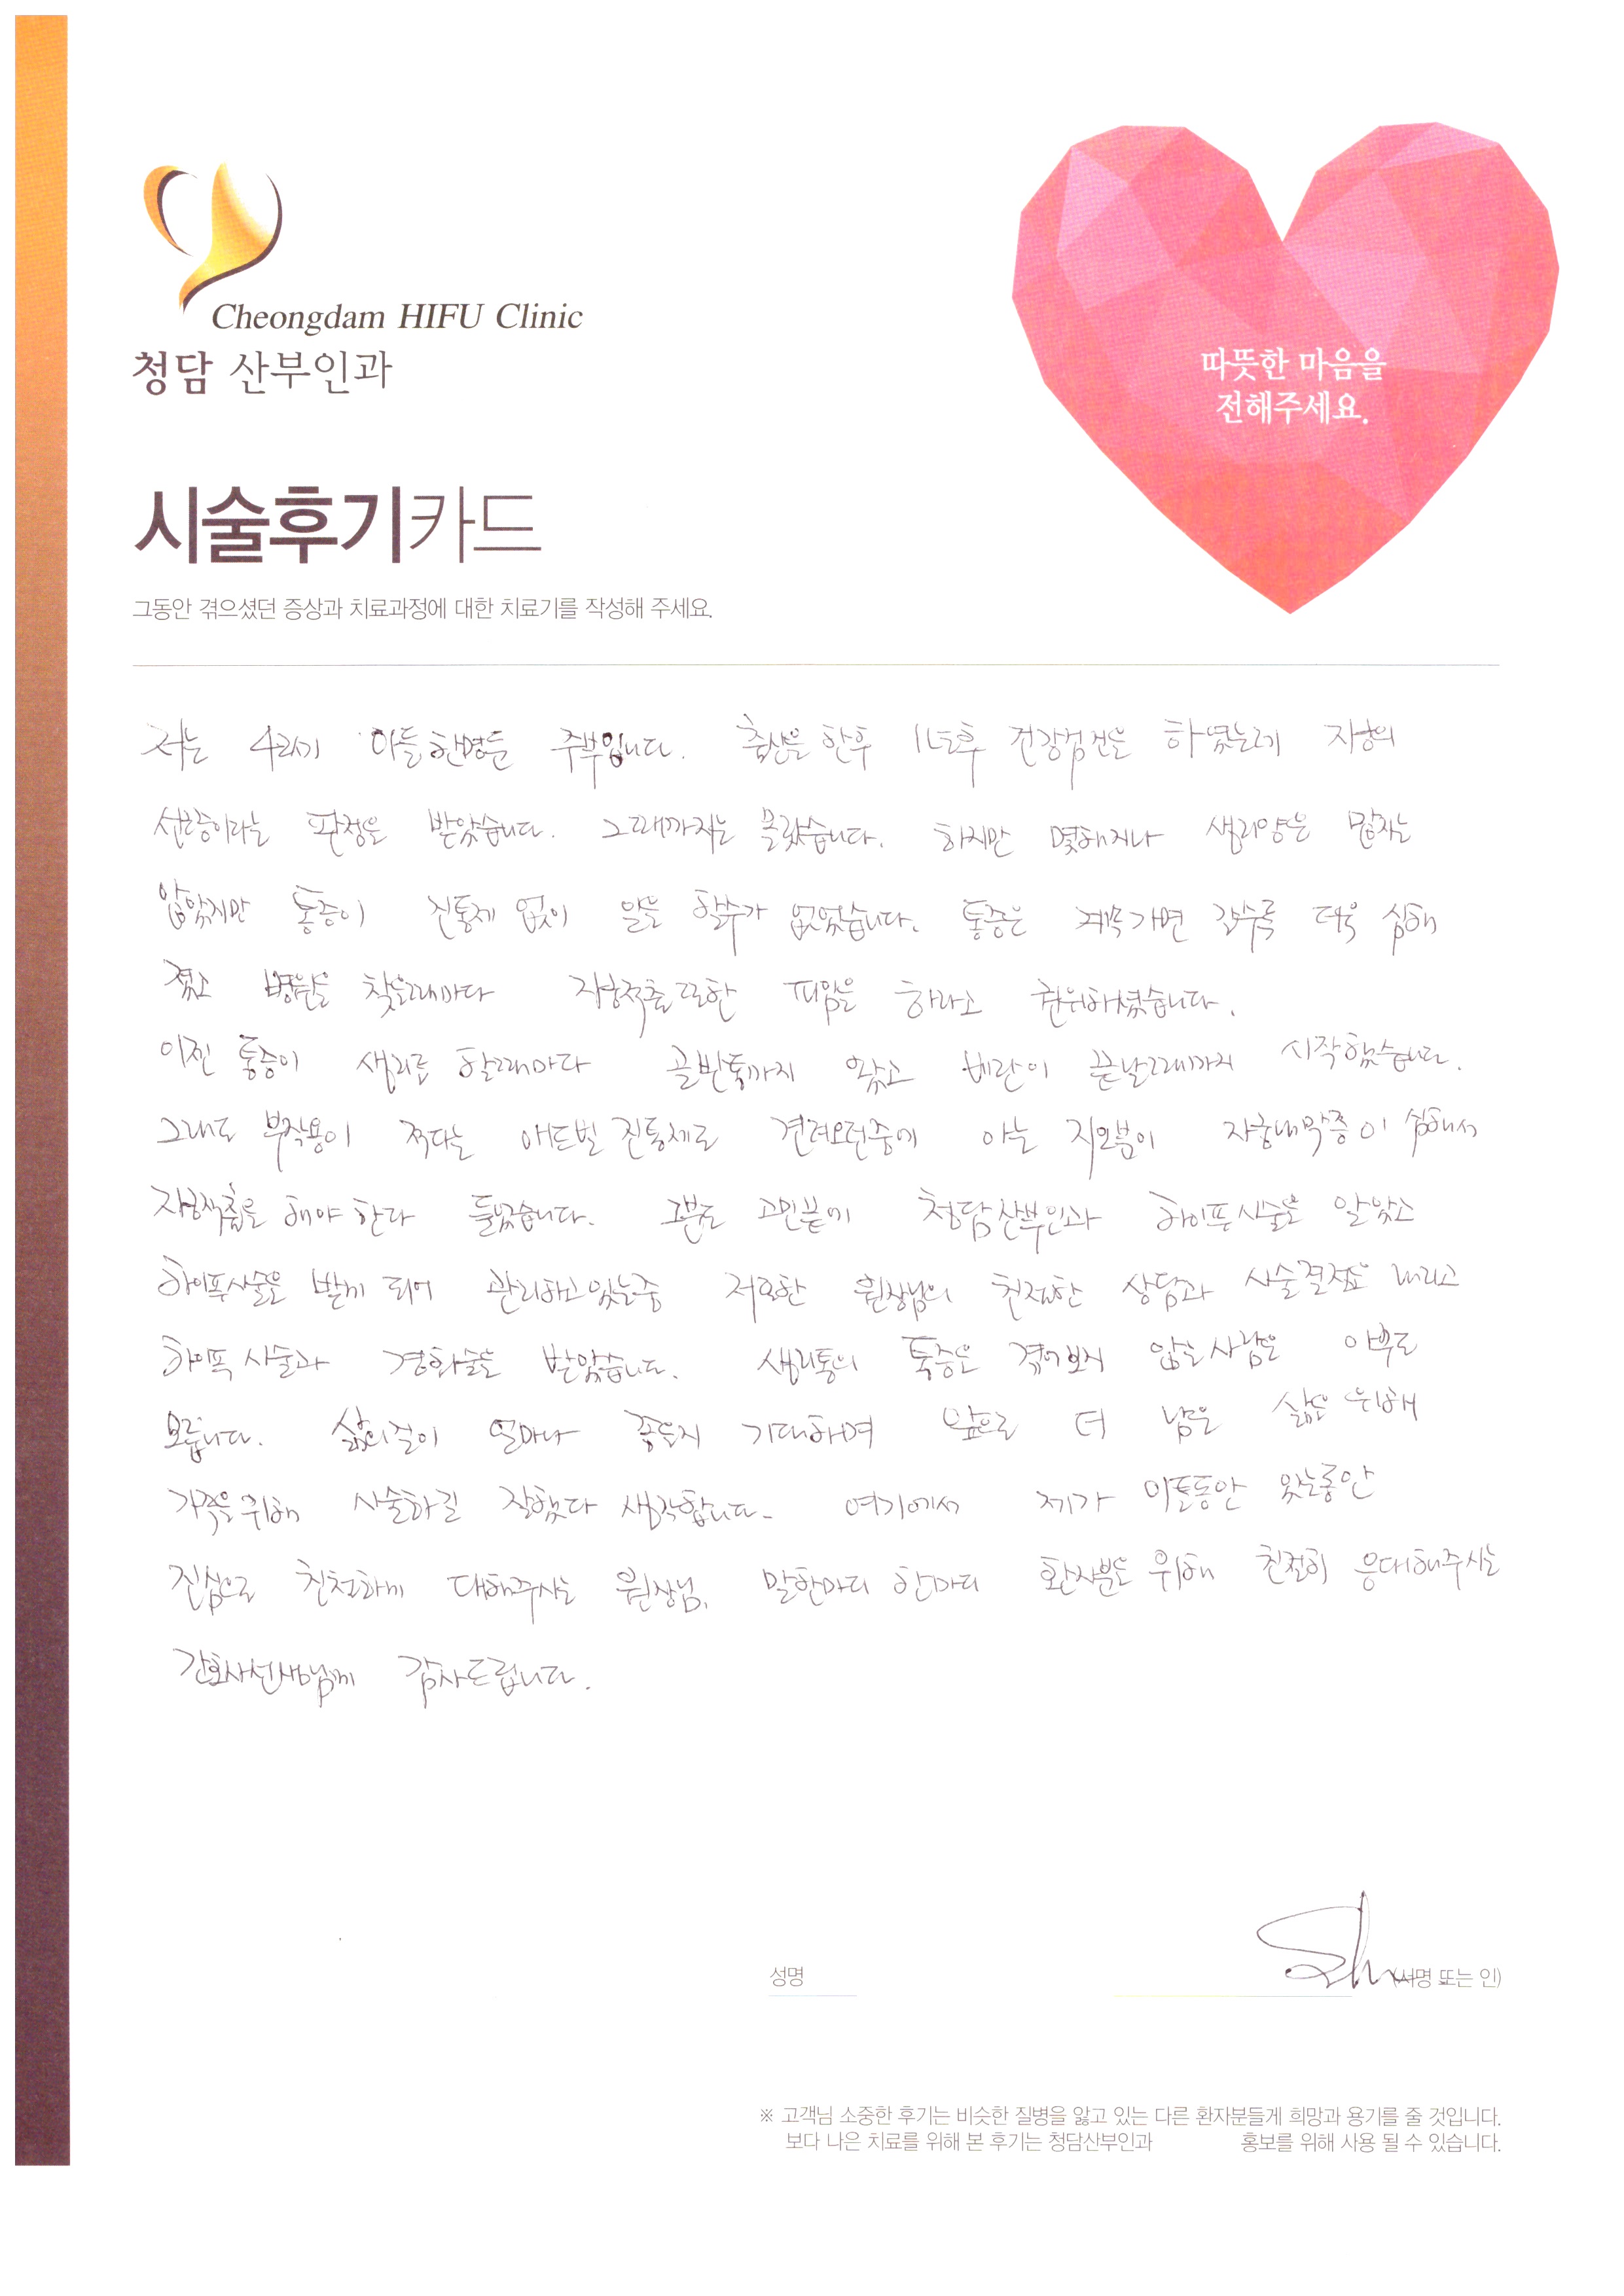 Cheongdam HIFU Clinic
청담 산부인과
따뜻한 마음을
전해주세요.
시술후기카드
그동안 겪으셨던 증상과 치료과정에 대한 치료기를 작성해 주세요.
저는 42세기 아들한명둔 주부입니다. 출산을 한후 1년후 건강검진을 하였는데 자궁의
선근증이라는 판정을 받았습니다. 그때까지는 몰랐습니다. 하지만 몇해지나 생리양은 많지는
않았지만 통증이 진통제 없이 일을 할수가 없었습니다. 통증은 계속가면 갈수록 더욱 심해
졌고 병원을 찾을때마다 자궁적출 또한 피임을 하라고 권위하셨습니다.
이젠 통증이 생리를 할때마다 골반통까지 왔고 배란이 끝날때까지 시작했습니다.
그래도 부작용이 적다는 애드빌 진통제로 견뎌오던중에 아는 지인분이 자궁내막증이 심해서
자궁적출을 해야한다 들었습니다. 고민끝에 청담산부인과 하이푸시술을 알았고
하이푸시술을 받게 되어 관리하고있는중 원장님의 친절한 상담과 시술결정을 내리고
하이푸 시술과 경화술을 받았습니다. 생리통의 통증은 겪어보지 않은사람은 아무도
모릅니다. 삶의질이 얼마나 좋을지 기대하며 앞으로 더 남은 삶을 위해
가족을위해 시술하길 잘했다 생각합니다. 여기에서 제가 이틀동안 있는동안
진심으로 친절하게 대해주시는 원장님, 말한마디 한마디 환자분을 위해 친절히 응대해주시는
간호사선생님께 감사드립니다.
성명
(서명 또는 인)
※ 고객님 소중한 후기는 비슷한 질병을 앓고 있는 다른 환자분들게 희망과 용기를 줄 것입니다.
보다 나은 치료를 위해 본 후기는 청담산부인과 홍보를 위해 사용 될 수 있습니다.